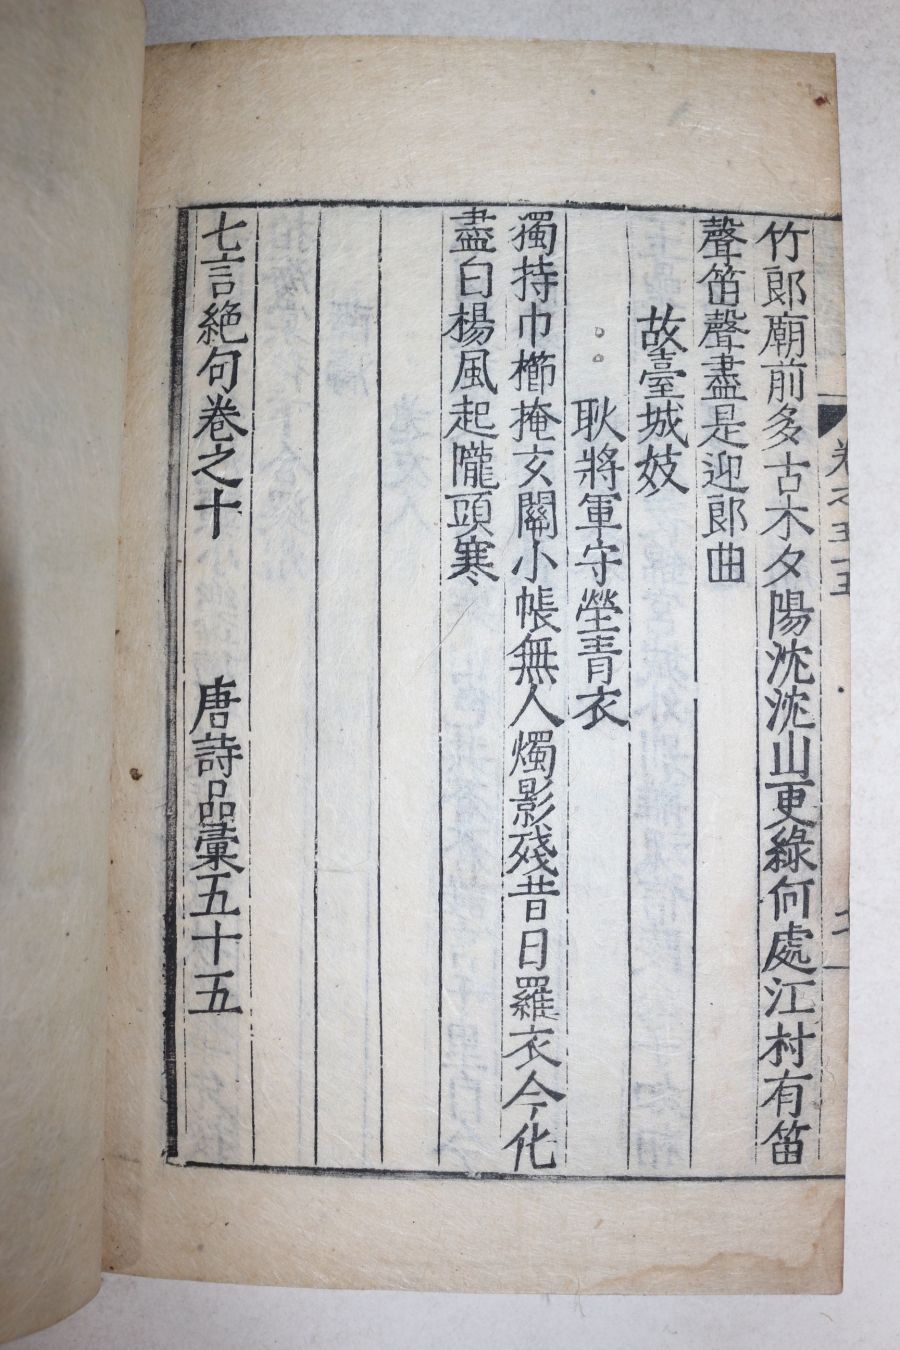 竹郎廟前多古木夕陽沈沈山更綠何處江村有笛
聲笛聲盡是迎郎曲
故臺城妓
耿將軍守塋青衣
獨持巾櫛掩玄關小帳無人燭影殘昔日羅衣今化
盡白楊風起隴頭寒
七言絕句卷之十 唐詩品彙五十五